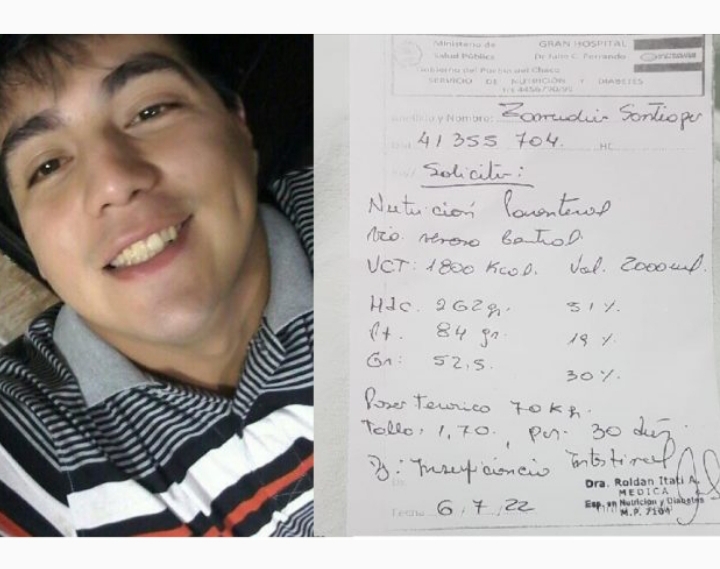 Ministerio de
Salud Pública
GRAN HOSPITAL
Dr. Julio C. Perrando
Gobierno del Pueblo del Chaco
SERVICIO DE NUTRICIÓN Y DIABETES
y Nombre:
41 355 704. HC
Solicito:
Nutrición Parenteral
Via venosa Central.
VCT: 1800 Kcal. Vol. 2000 ml.
Hdc. 262 gr. 51%
Pt. 84 gr. 19%
Gr: 52,5. 30%
Peso teorico 70 Kg.
Talla: 1,70. por 30 días
D: Insuficiencia Intestinal
Dra. Roldan Itati A.
MEDICA
Esp. en Nutricion y Diabetes
M.P. 7104
Fecha 6/7/22